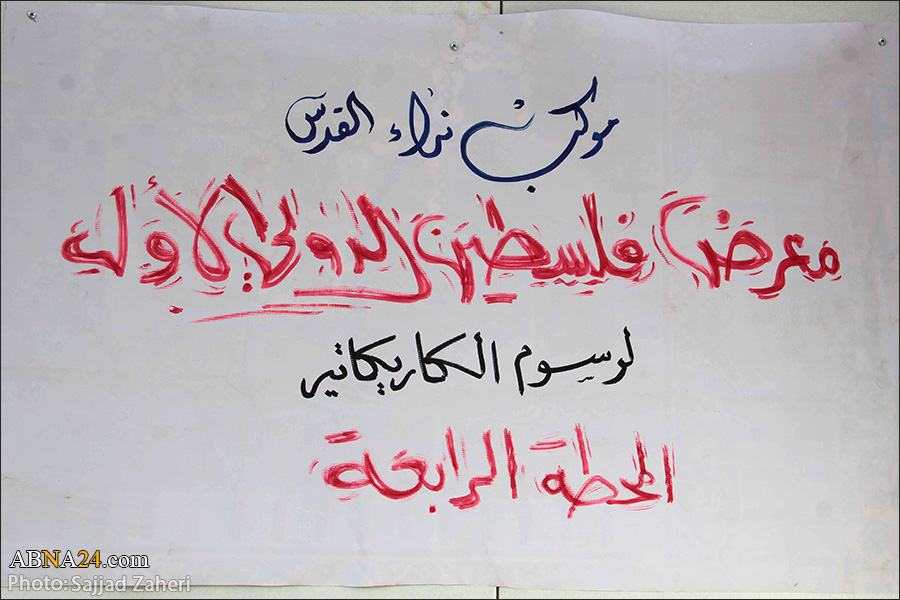 موكب نداء القدس
معرض فلسطين الدولي الأول
لرسوم الكاريكاتير
المحطة الرابعة
ABNA24.com
Photo: Sajjad Zaheri